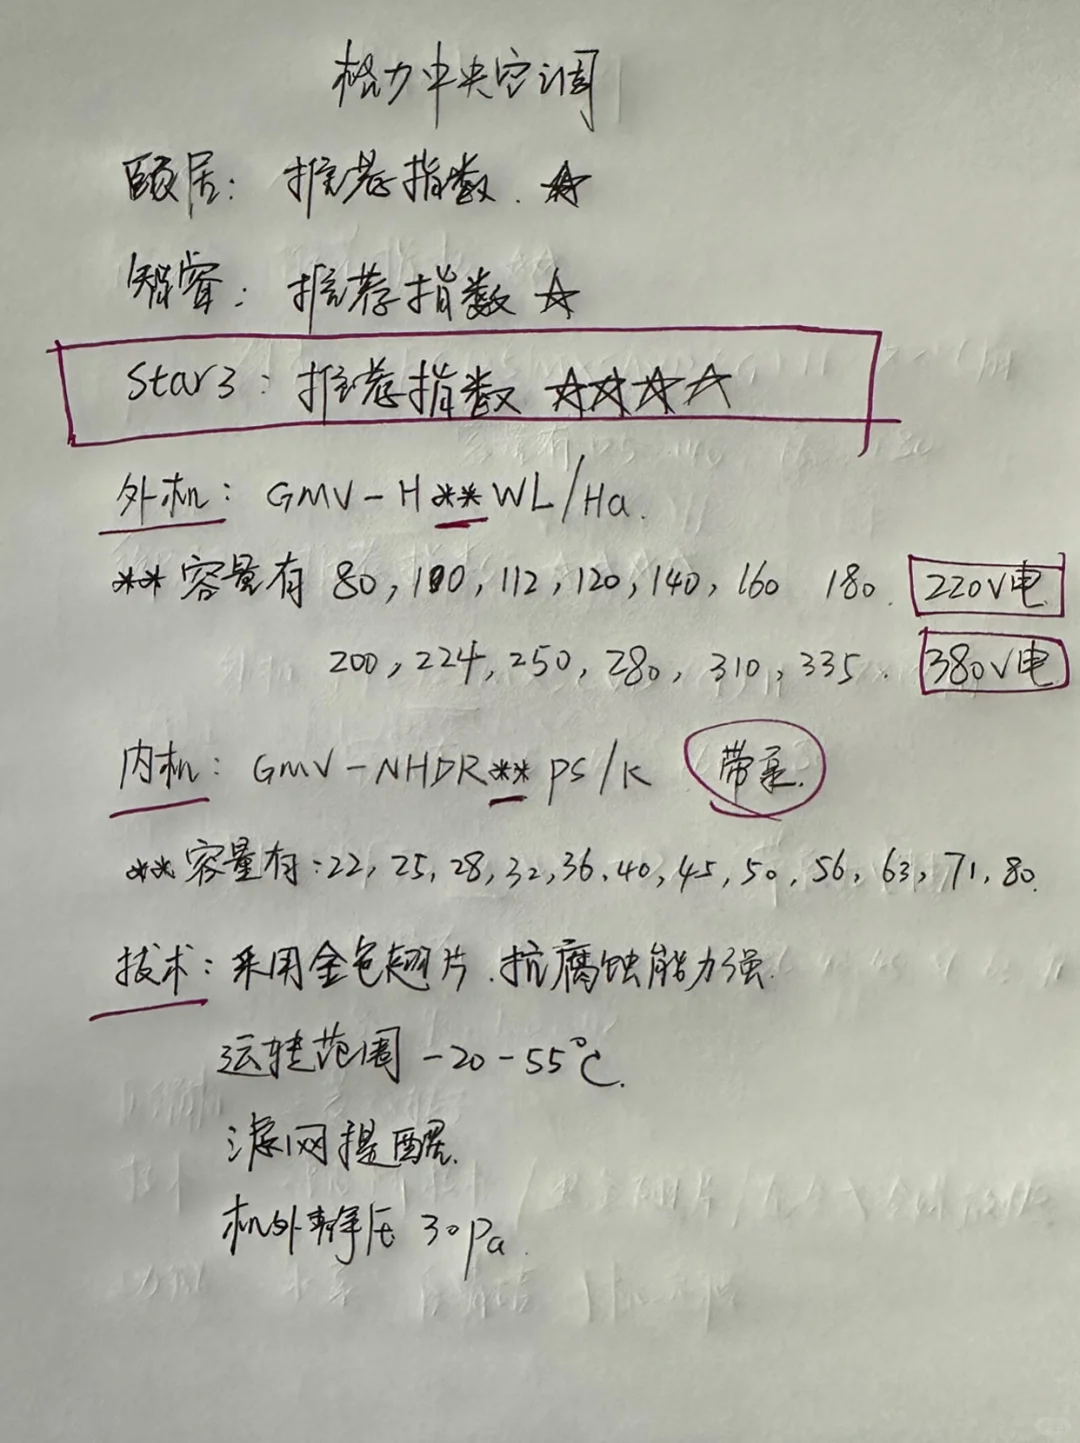 格力中央空调
颐居：推荐指数．☆
智睿：推荐指数 ☆
Star3：推荐指数 ☆☆☆☆
外机：GMV-H**WL/Ha.
**容量有 80,100,112,120,140,160 180. 220V电.
200,224,250,280,310,335. 380V电
内机：GMV-NHDR**PS/K 带泵.
**容量有:22,25,28,32,36.40,45,50,56,63,71,80.
技术：采用金色翅片.抗腐蚀能力强.
运转范围 -20-55℃.
滤网提醒.
机外静压 30Pa.